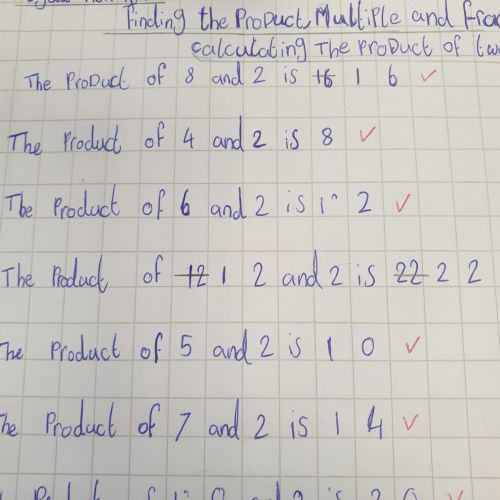 Finding the Product, Multiple and
calculating The product of
The Product of 8 and 2 is 1 6
The Product of 4 and 2 is 8
The Product of 6 and 2 is 1 2
The Product of 12 1 2 and 2 is 22 2 2
The Product of 5 and 2 is 1 0
The Product of 7 and 2 is 1 4